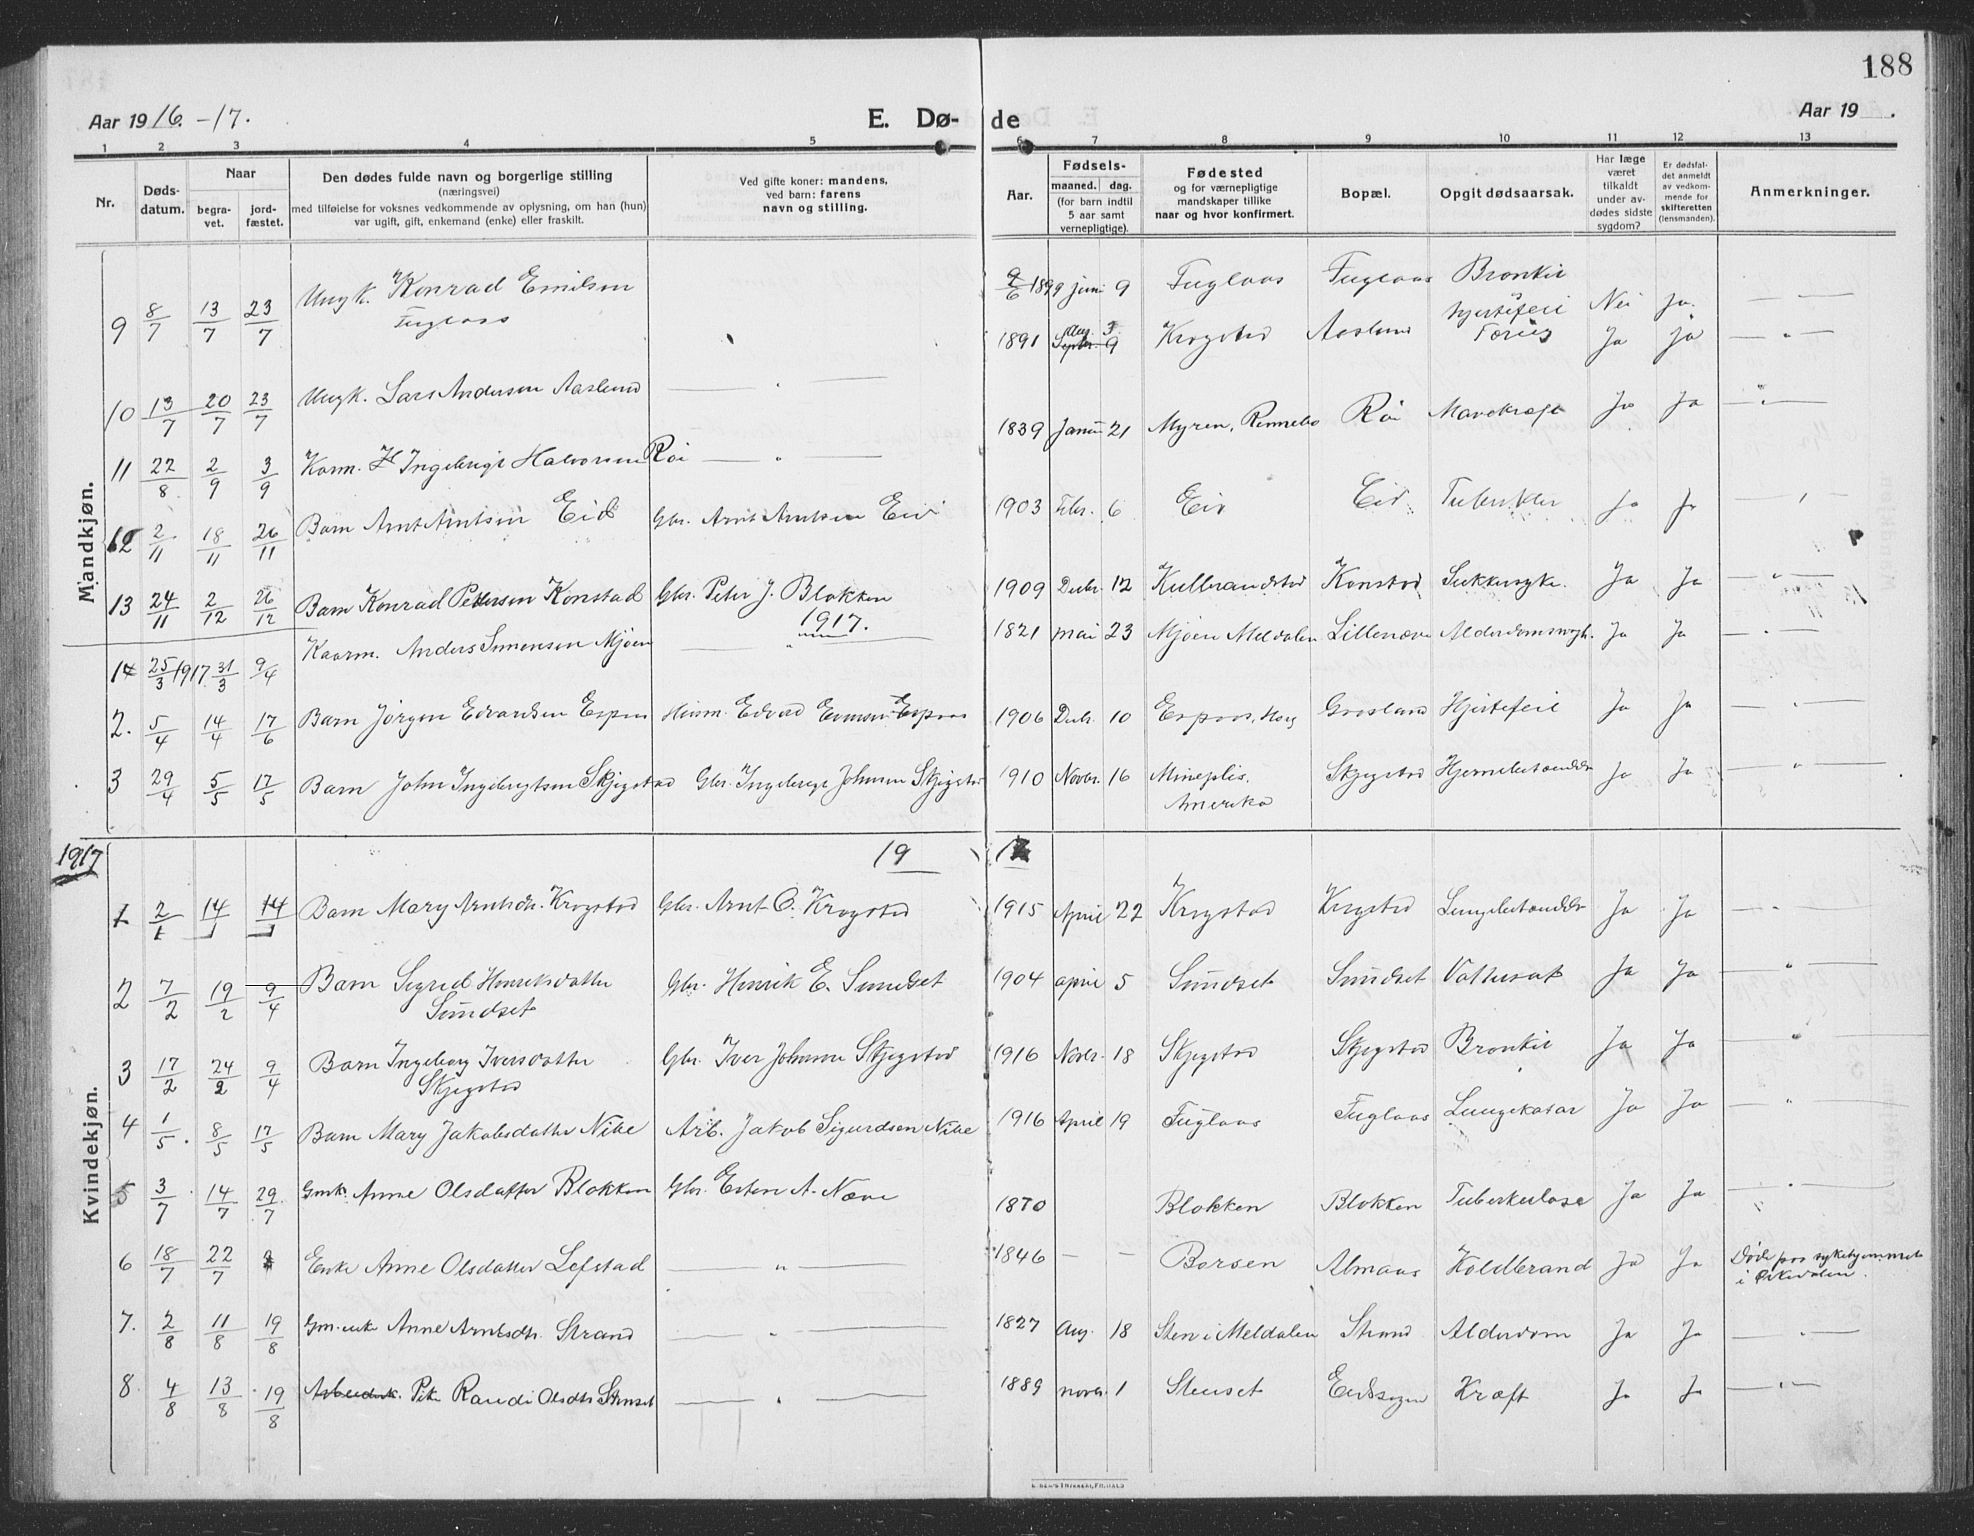 188
Aar 1916.-17.
E. Dø-de
Aar 19 .
1 2 3 4 5 6 7 8 9 10 11 12 13
Nr.
Døds-
datum.
Naar
begra-
vet.
jord-
fæstet.
Den dødes fulde navn og borgerlige stilling
(næringsvei)
med tilføielse for voksnes vedkommende av oplysning, om han (hun)
var ugift, gift, enkemand (enke) eller fraskilt.
Ved gifte koner: mandens,
ved barn: farens
navn og stilling.
Aar.
Fødsels-
maaned. dag.
(for barn indtil
5 aar samt
vernepligtige).
Fødested
og for værnepligtige
mandskaper tillike
naar og hvor konfirmert.
Bopæl.
Opgit dødsaarsak.
Har læge
været
tilkaldt
under av-
dødes sidste
sygdom?
Er dødsfal-
det anmeldt
av vedkom-
mende for
skifteretten
(lensmanden).
Anmerkninger.
Mandkjøn.
9 8/7 13/7 23/7 Ungk. Konrad Emilsen Fuglaas 1899 juni 9 Fuglaas Fuglaas Bronkit Hjertefeil Nei Ja
10 13/7 20/7 23/7 Ungk. Lars Andersen Aaslund — " — 1891 Aug. 3 Septbr. 9 Krogstad Aaslund Ja Ja — " —
11 22/8 2/9 3/9 Ingebrigt Halvorsen Røi — " — 1839 Januar 21 Myren, Rennebo Røi Mavekræft Ja Ja — " —
12 2/11 18/11 26/11 Barn Arnt Arntsen Eid Gbr. Arnt Arntsen Eid 1903 Febr. 6 Eid Eid Ja Ja — " —
13 24/11 2/12 26/12 Barn Konrad Pettersen Konstad Gbr. Peter J. Blokken 1909 Decbr. 12 Kulbrandstad Konstad Sukkersyke. Ja Ja — " —
1917.
1 25/3 1917 31/3 9/4 Kaarm. Anders Simensen Mjøen — " — 1821 mai 23 Mjøen Meldalen Lillenæve Ja Ja — " —
2. 5/4 14/4 17/6 Barn Jørgen Edvardsen Espaas Husm. Edvard Espaas 1906 Decbr. 10 Espaas, Grosland Hjertefeil Ja Ja — " —
3 29/4 5/5 17/5 Barn John Ingebrigtsen Skjegstad Gbr. Ingebrigt Johnsen Skjegstad 1910 Novbr. 16 Mineplis, Amerika Skjegstad Hjernebetændelse Ja Ja — " —
1917
19 17
Kvindekjøn.
1 2/1 14/1 14/1 Barn Mary Arntsdtr. Krogstad Gbr. Arnt O. Krogstad 1915 April 22 Krogstad Krogstad Lungebetændelse Ja Ja — " —
2 7/2 19/2 9/4 Barn Sigrid Henriksdatter Sundset Gbr. Henrik E. Sundset 1904 april 5 Sundset Sundset Vattersot Ja Ja — " —
3 17/2 24/2 9/4 Barn Ingeborg Iversdatter Skjegstad Gbr. Iver Johnsen Skjegstad 1916 Novbr. 18 Skjegstad Skjegstad Bronkit Ja Ja — " —
4 1/5. 8/5 17/5 Barn Mary Jakobsdatter Nibe Arb. Jakob Sigurdsen Nibe 1916 April 19 Fuglaas Fuglaas Lungekatar Ja Ja — " —
5 3/7 14/7 29/7 Gmk. Anne Olsdatter Blokken Gbr. Esten A. Næve 1870 Blokken Blokken Tuberkulose Ja Ja — " —
6 18/7 22/7 Enke Anne Olsdatter Lefstad — " — 1846 — — Borsen Almaas Koldbrand Ja Ja Døde paa sykehjemmet i Orkedalen.
7. 2/8 11/8 19/8 Gm. enke Anne Arntsdtr. Strand — " — 1827 Aug. 18 Sten i Meldalen Strand Alderdom Ja Ja — " —
8 4/8 13/8 19/8 Pike Randi Olsdtr Stenset — " — 1889 novbr. 1 Stenset Kræft Ja Ja — " —